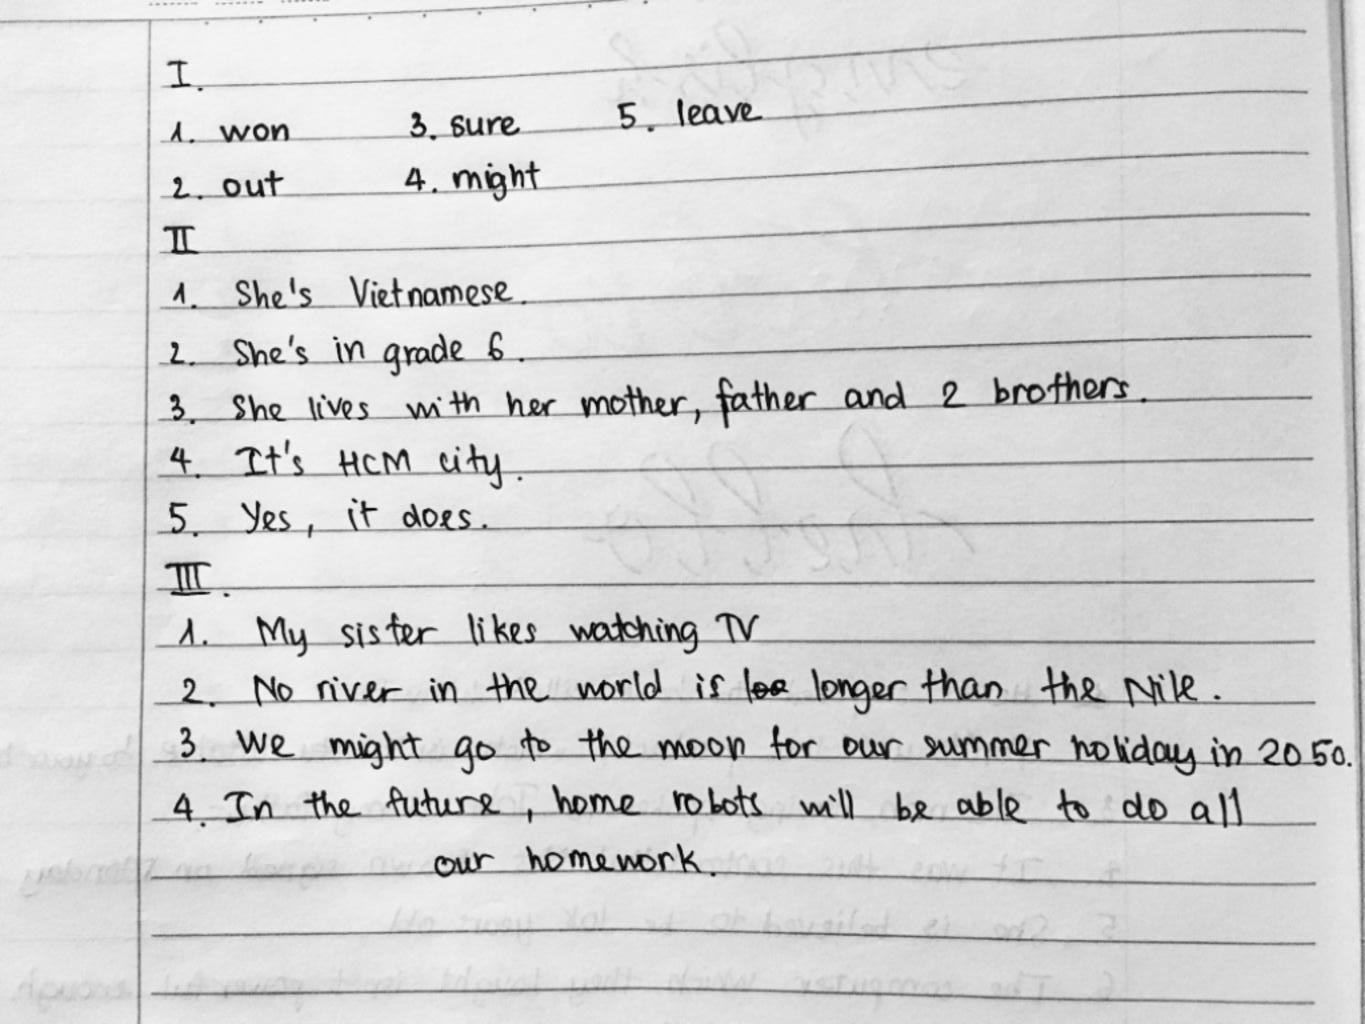 I.
1. won 3. sure 5. leave
2. out 4. might
II
1. She's Vietnamese.
2. She's in grade 6.
3. She lives with her mother, father and 2 brothers.
4. It's HCM city.
5. Yes, it does.
III.
1. My sister likes watching TV
2. No river in the world is longer than the Nile.
3. We might go to the moon for our summer holiday in 2050.
4. In the future, home robots will be able to do all
our homework.